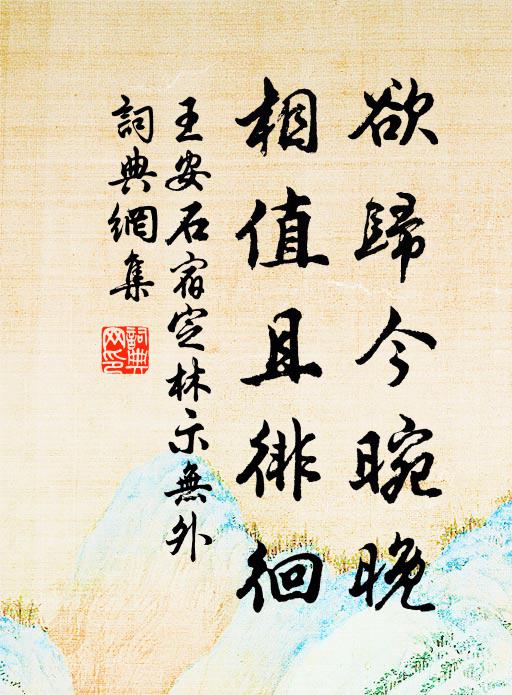 欲歸今晼晚
相值且徘徊
王安石宿定林示無外
詞典網集
詞典網印